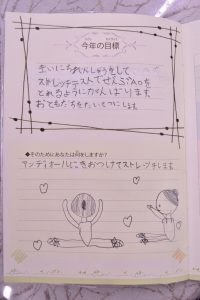 今年の目標
まいにちれんしゅうをして
ストレッチテストでぜんぶAを
とれるようにがんばります。
おともだちをたいせつにします
◆そのためにあなたは何をしますか?
アンディオールにきおつけてストレッチをします